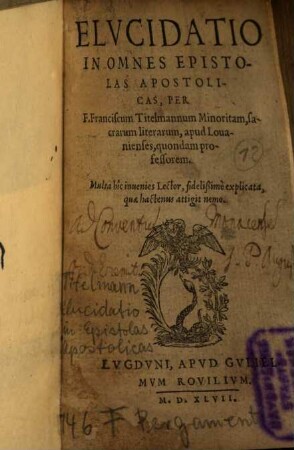 ELVCIDATIO
IN OMNES EPISTO-
LAS APOSTOLI-
CAS, PER
F. Franciscum Titelmannum Minoritam, sa-
crarum literarum, apud Loua-
nienses, quondam pro-
fessorem.
Multa hîc inuenies Lector, fidelissimè explicata,
quæ hactenus attigit nemo.
Ad Conventum Monacensem
Titelmann
Elucidatio
in Epistolas
Apostolicas
LVGDVNI, APVD GVLIEL-
MVM ROVILIVM.
M. D. XLVII.
746. F Pergament